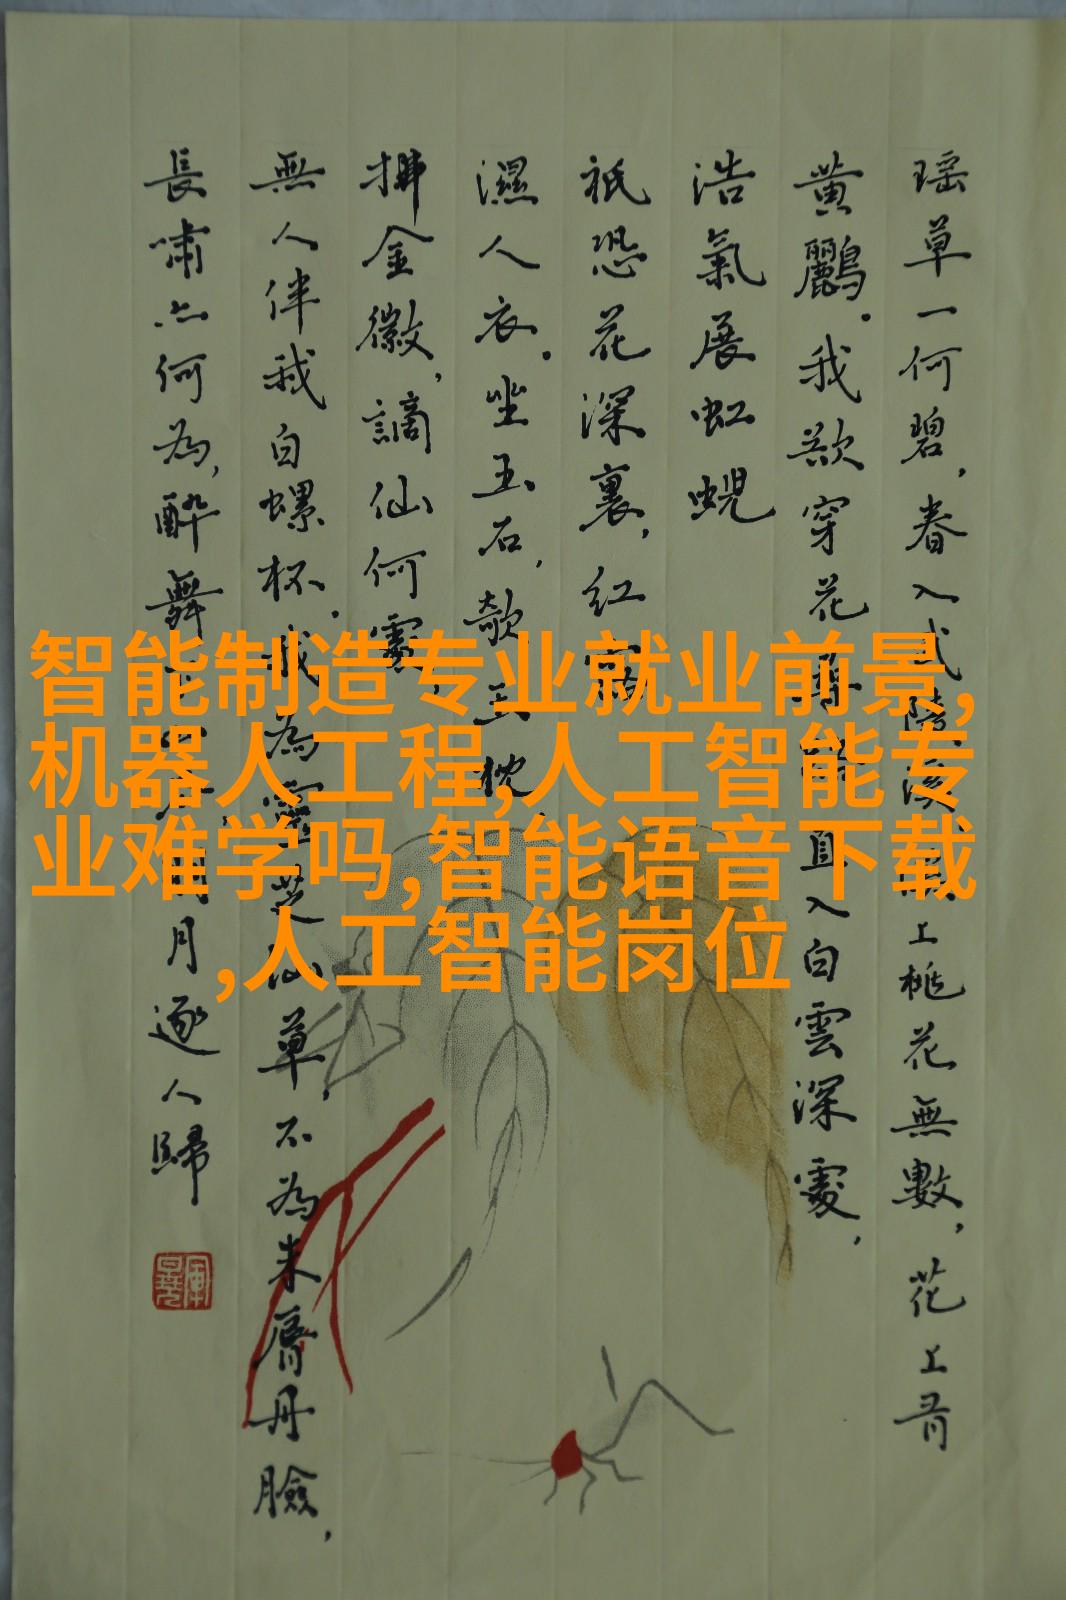 瑶草一何碧,春入武陵溪。溪上桃花無數,花上有
黄鸝。我欲穿花尋路直入白雲深處,
浩氣展虹蜺
祇恐花深裏,紅露
濕人衣。坐玉石,欹玉枕
拂金徽,謫仙何處,
無人伴我白螺杯。我為靈芝仙草,不為朱脣丹臉,
長嘯亦何為,醉舞下山明月逐人歸
智能制造专业就业前景,
机器人工程,人工智能专
业难学吗,智能语音下载
,人工智能岗位